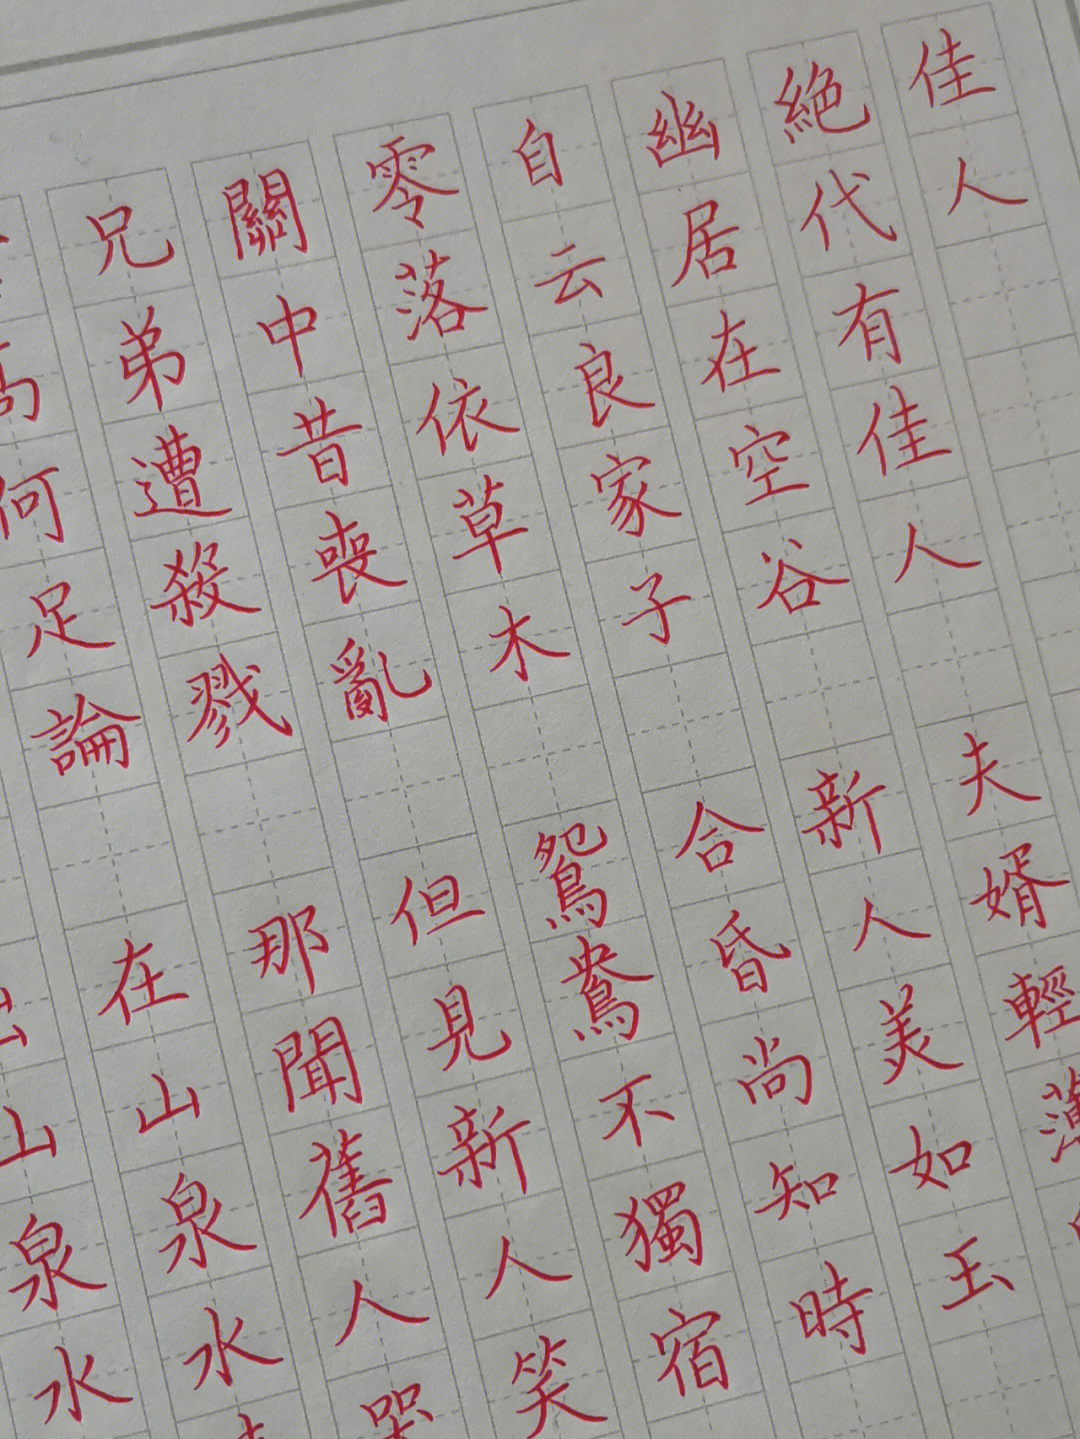 佳人
絕代有佳人
幽居在空谷
自云良家子
零落依草木
關中昔喪亂
兄弟遭殺戮
高何足論
夫婿輕薄
新人美如玉
合昏尚知時
鴛鴦不獨宿
但見新人笑
那聞舊人哭
在山泉水
山泉水